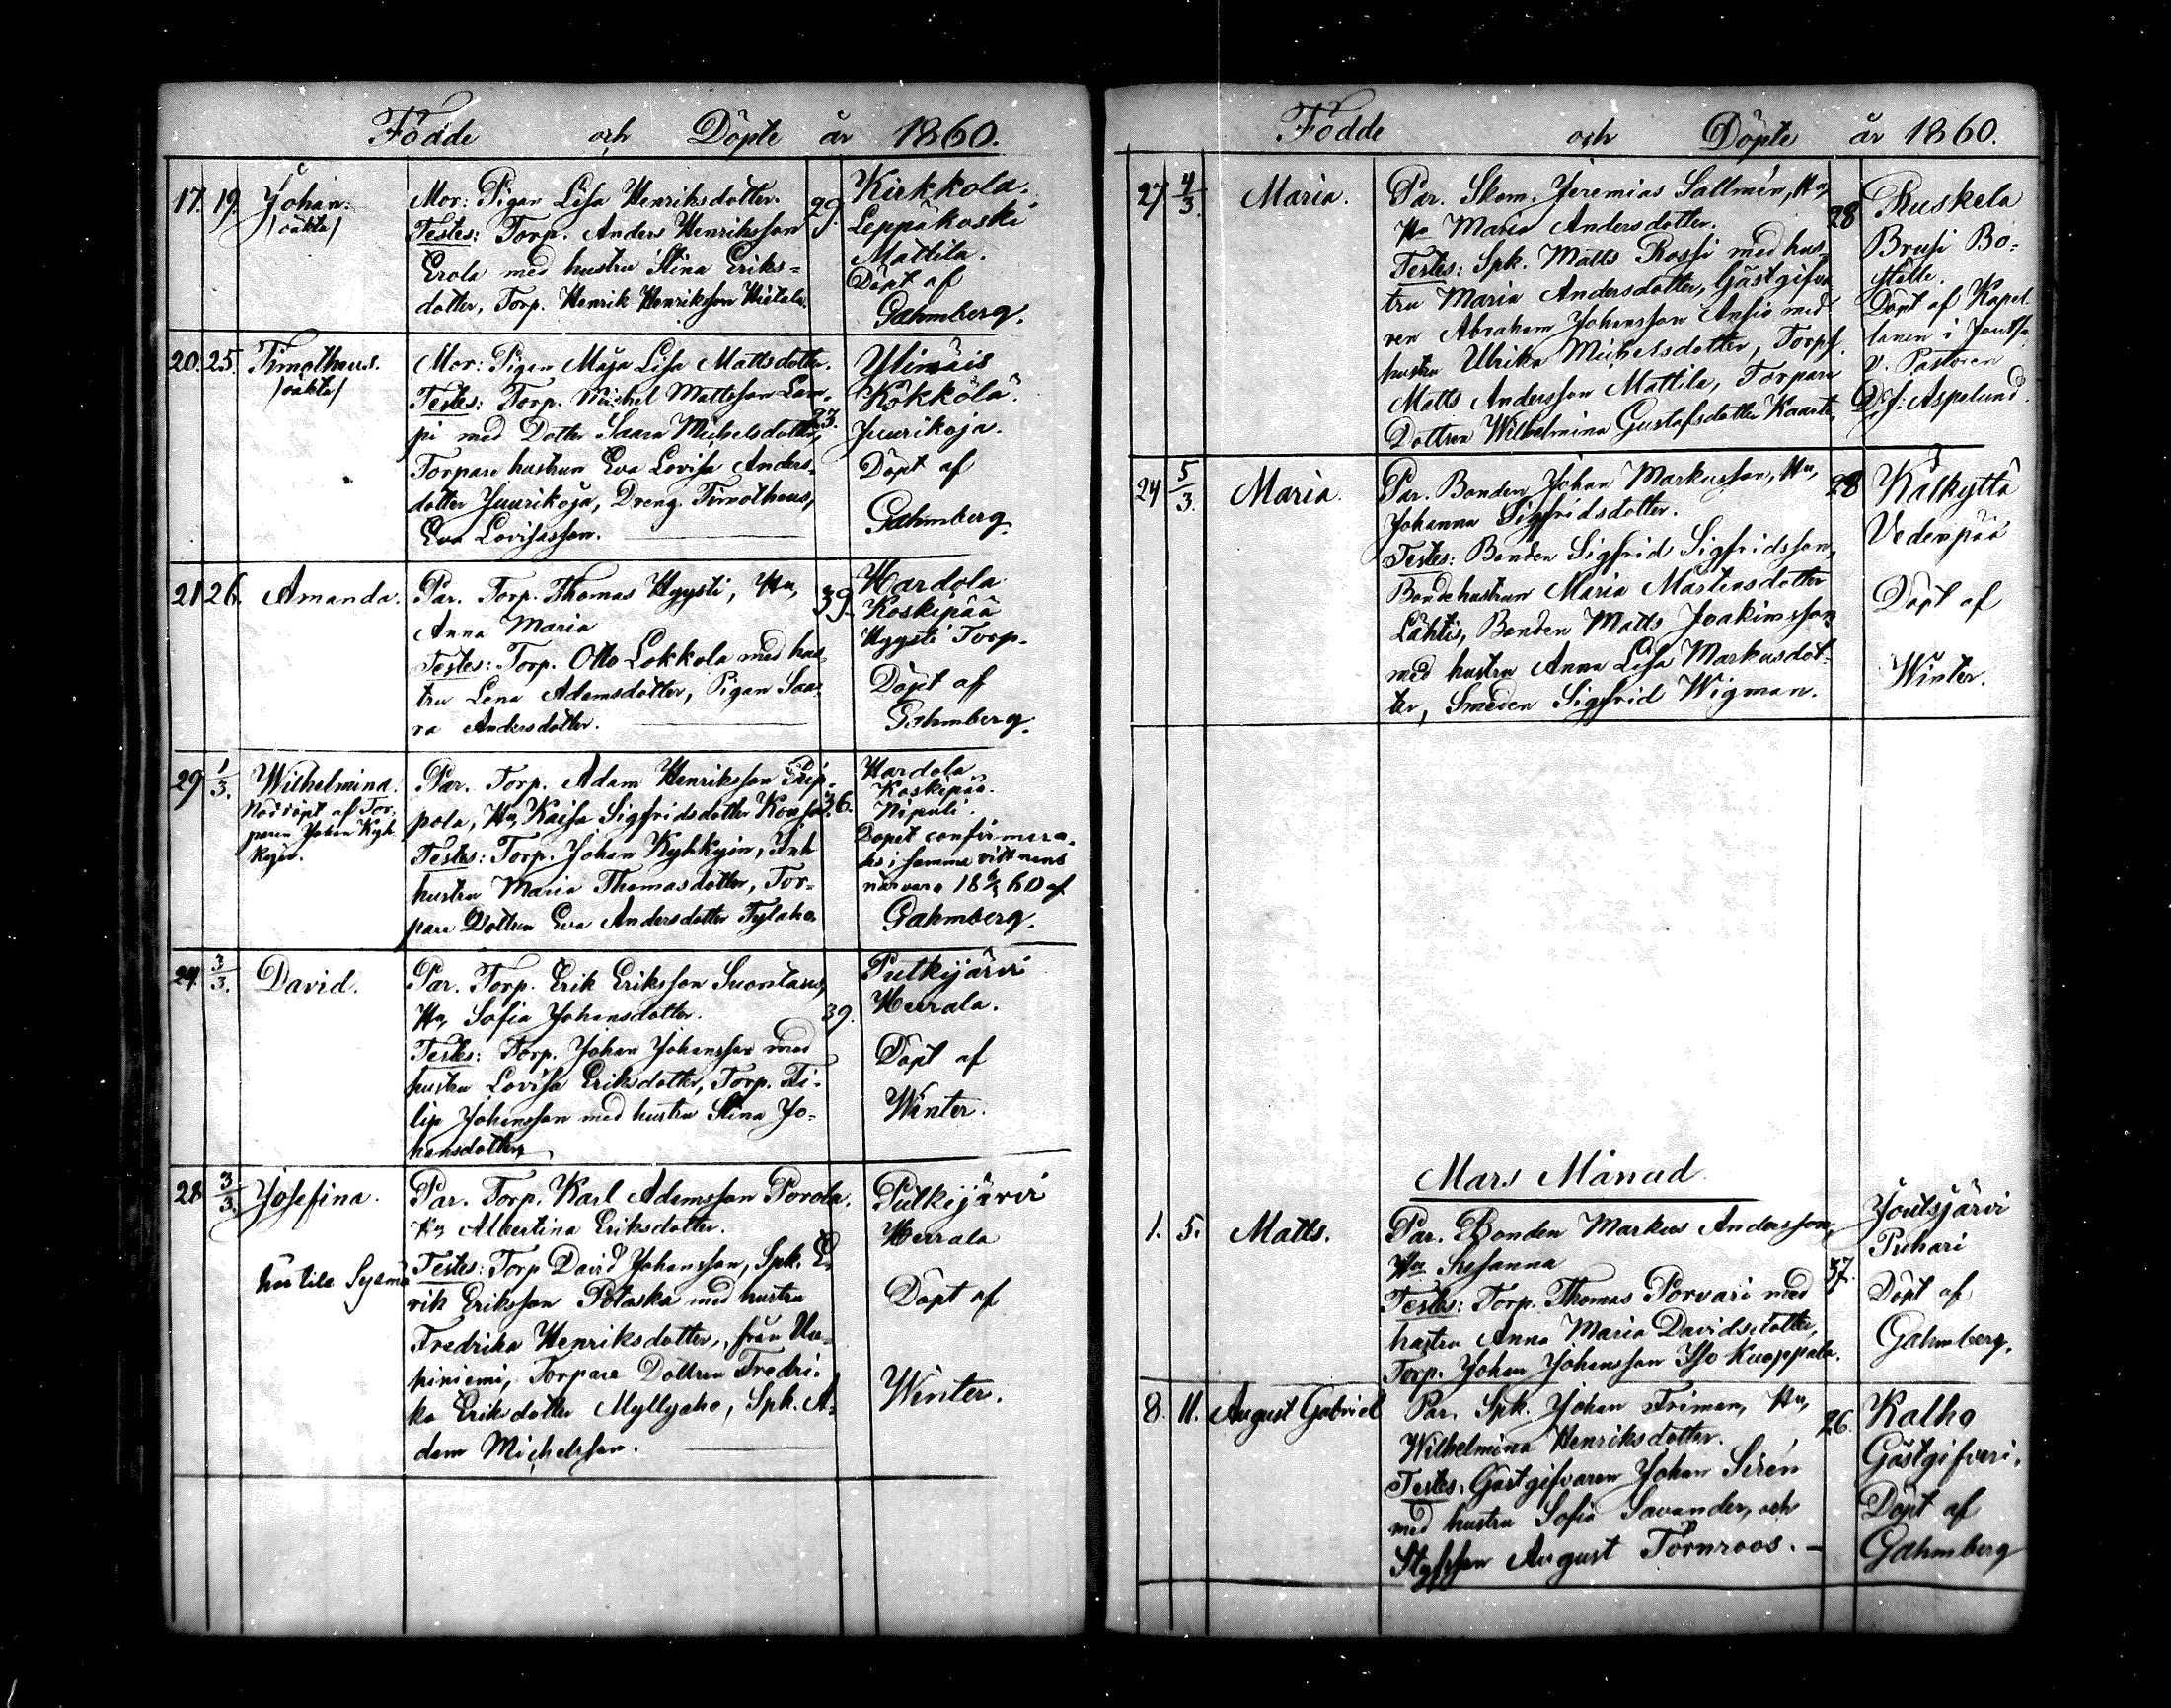 Födde och Döpte år 1860.
17. 19. Johan. Mor: Pigan Lisa Henriksdotter. 29. Kirkkola.
/oäkta/ Testes: Torp. Anders Henriksson Leppäkoski
Erola med hustru Stina Eriks= Mattila.
dotter, Torp. Henrik Henriksson Hietala. Döpt af
Gahmberg.
20. 25. Timotheus. Mor: Pigan Maja Lisa Mattsdotter. Ylimäis
/oäkta/ Testes: Torp. Michel Mattsson Lam= 23. Kökkölä.
pi med Dotter Saara Michelsdotter, Juurikoja.
Torpare hustrun Eva Lovisa Anders= Döpt af
dotter Juurikoja, Dreng Timotheus, Gahmberg.
Eva Lovisasson.
21 26. Amanda. Par. Torp. Thomas Hyysti, Hu, 39. Hardola
Anna Maria Koskipää
Testes: Torp. Otto Lokkola med hus Hyysti Torp.
tru Lena Adamsdotter, Pigan Saa Döpt af
ra Andersdotter. Gahmberg.
29 1/3. Wilhelmina. Par. Torp. Adam Henriksson Hardola
Nöddöpt af Tor= pola, Hu, Kaisa Sigfridsdotter 36. Koskipää.
paren Johan Kyh Testes: Torp. Johan Kyhkyin, Nipuli.
kyin. hustru Maria Thomasdotter, Tor= Döpet confirmera=
pare Dottren Eva Andersdotter des i samma vittnens
närvaro 18 60 af
Gahmberg.
24. 3/3. David. Par. Torp. Erik Eriksson Putkijärvi
Hu, Sofia Johansdotter. 39. Herrala.
Testes: Torp. Johan Johansson med Döpt af
hustru Lovisa Eriksdotter, Torp. Fi= Winter.
lip Johansson med hustru Stina Jo=
hansdotter,
28 3/3. Josefina. Par. Torp. Karl Adamsson Porola. Putkijärvi
Hu, Albertina Eriksdotter. Herrala
Sysmä Testes: Torp David Johansson, Spk. E= Döpt af
rik Eriksson Potaska med hustru Winter.
Fredrika Henriksdotter, från
Torpare Dottren Fredri=
ka Eriksdotter Myllyaho, Spk. A=
dam Michelsson.
Födde och Döpte år 1860.
27 4/3. Maria. Par. Skom. Jeremias Sallmén, Hu, 28 Ruskela
Hu Maria Andersdotter. Brusi Bo=
Testes: Spk. Matts Rossi med hus= ställe.
tru Maria Andersdotter, Gästgifva Döpt af Kapel
ren Abraham Johansson Ansio med lanen i Joutsa
hustru Ulrika Michelsdotter, Torp. V. Pastoren
Matts Andersson Mattila, Torpare Aspelund.
Dottren Wilhelmina Gustafsdotter Kaarto,
24 5/3. Maria. Par. Bonden Johan Markusson, Hu, 28 Kälkyttä
Johanna Sigfridsdotter. Vedenpää
Testes: Bonden Sigfrid Sigfridsson, Döpt af
Bonde hustrun Maria Mårtensdotter Winter.
Lahtis, Bonden Matts Joakimsson
med hustru Anna Lisa Markusdot=
ter, Smeden Sigfrid Wigman.
Mars Månad.
1. 5. Matts. Par. Bonden Markus Andersson, 37. Joutsjärvi
Hu Susanna Puhari
Testes: Torp. Thomas Porvari med Döpt af
hustru Anna Maria Davidsdotter, Gahmberg.
Torp. Johan Johansson Iso Kuoppala.
8. 11. August Gabriel Par. Spk. Johan Friman, Hu, 26. Kalho
Wilhelmina Henriksdotter. Gästgifveri.
Testes: Gästgifvaren Johan Sirén Döpt af
med hustru Sofia Savander, och Gahmberg
Styfsson August Törnroos.